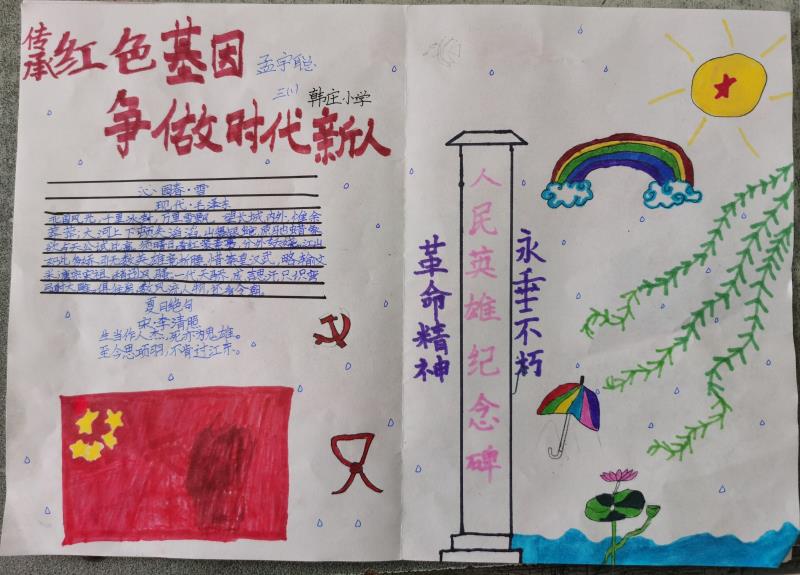 传承红色基因
争做时代新人
孟宇聪
三(1)
韩庄小学
沁园春·雪
现代·毛泽东
北国风光,千里冰封,万里雪飘。望长城内外,惟余
莽莽;大河上下,顿失滔滔。山舞银蛇,原驰蜡象,
欲与天公试比高。须晴日,看红装素裹,分外妖娆。江山
如此多娇,引无数英雄竞折腰。惜秦皇汉武,略输文
采;唐宗宋祖,稍逊风骚。一代天骄,成吉思汗,只识弯
弓射大雕。俱往矣,数风流人物,还看今朝。
夏日绝句
宋·李清照
生当作人杰,死亦为鬼雄。
至今思项羽,不肯过江东。
革命精神
人民英雄纪念碑
永垂不朽